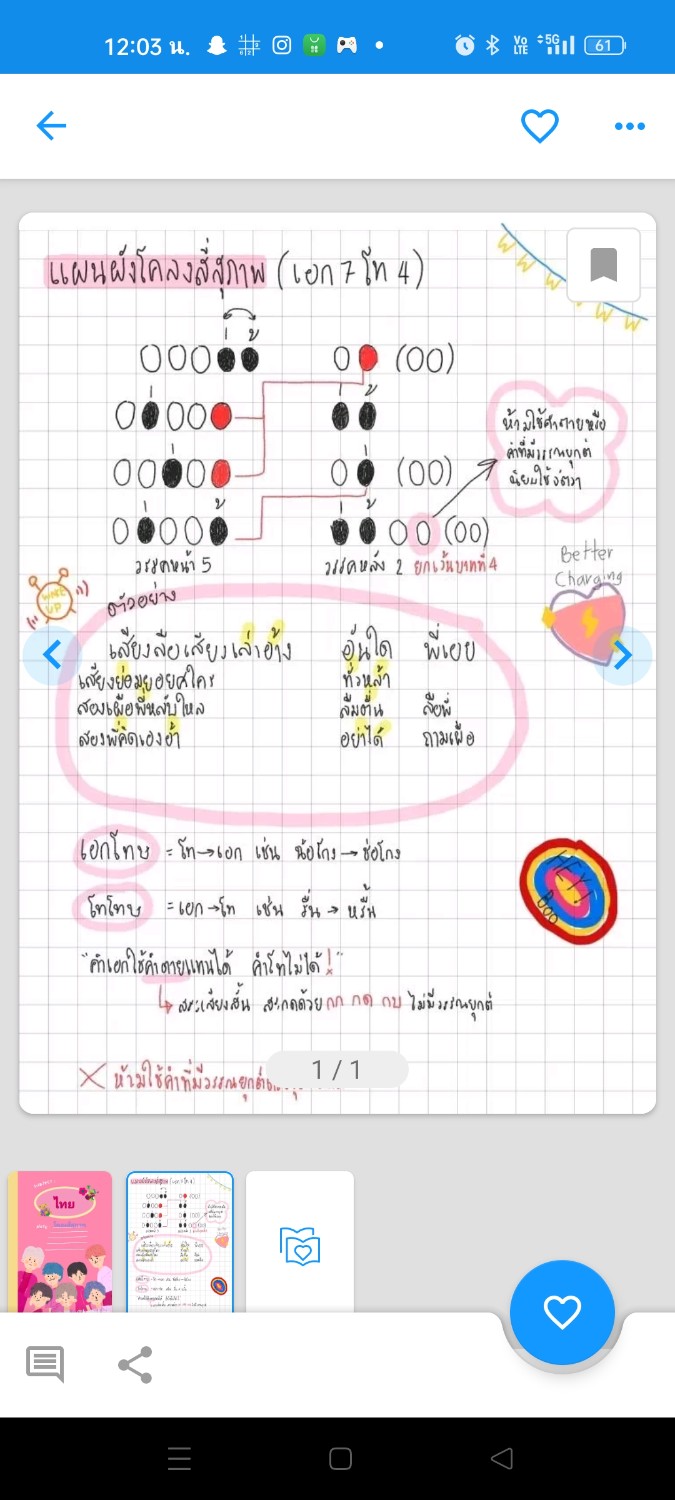 12:03 น.
Vo LTE 5G 61
แผนผังโคลงสี่สุภาพ (เอก 7 โท 4)
(OO)
ห้ามใช้คำตายหรือ
คำที่มีวรรณยุกต์
นิยมใช้จัตวา
(OO)
(OO)
วรรคหน้า 5
วรรคหลัง 2 ยกเว้นบาทที่ 4
Better
Charging
WAKE
UP
ตัวอย่าง
เสียงลือเสียงเล่าอ้าง อันใด พี่เอย
เสียงย่อมยอยศใคร ทั่วหล้า
สองเผือพี่หลับใหล ลืมตื่น ลือพี่
สองพี่คิดเองอ้า อย่าได้ ถามเผือ
เอกโทษ = โท→เอก เช่น ฉ้อโกง → ช่อโกง
HEY!
BOO
โทโทษ = เอก→โท เช่น รื่น → หรื้น
"คำเอกใช้คำตายแทนได้ คำโทไม่ได้!"
สระเสียงสั้น สะกดด้วย กก กด กบ ไม่มีวรรณยุกต์
ห้ามใช้คำที่มีวรรณยุกต์
1 / 1
ไทย